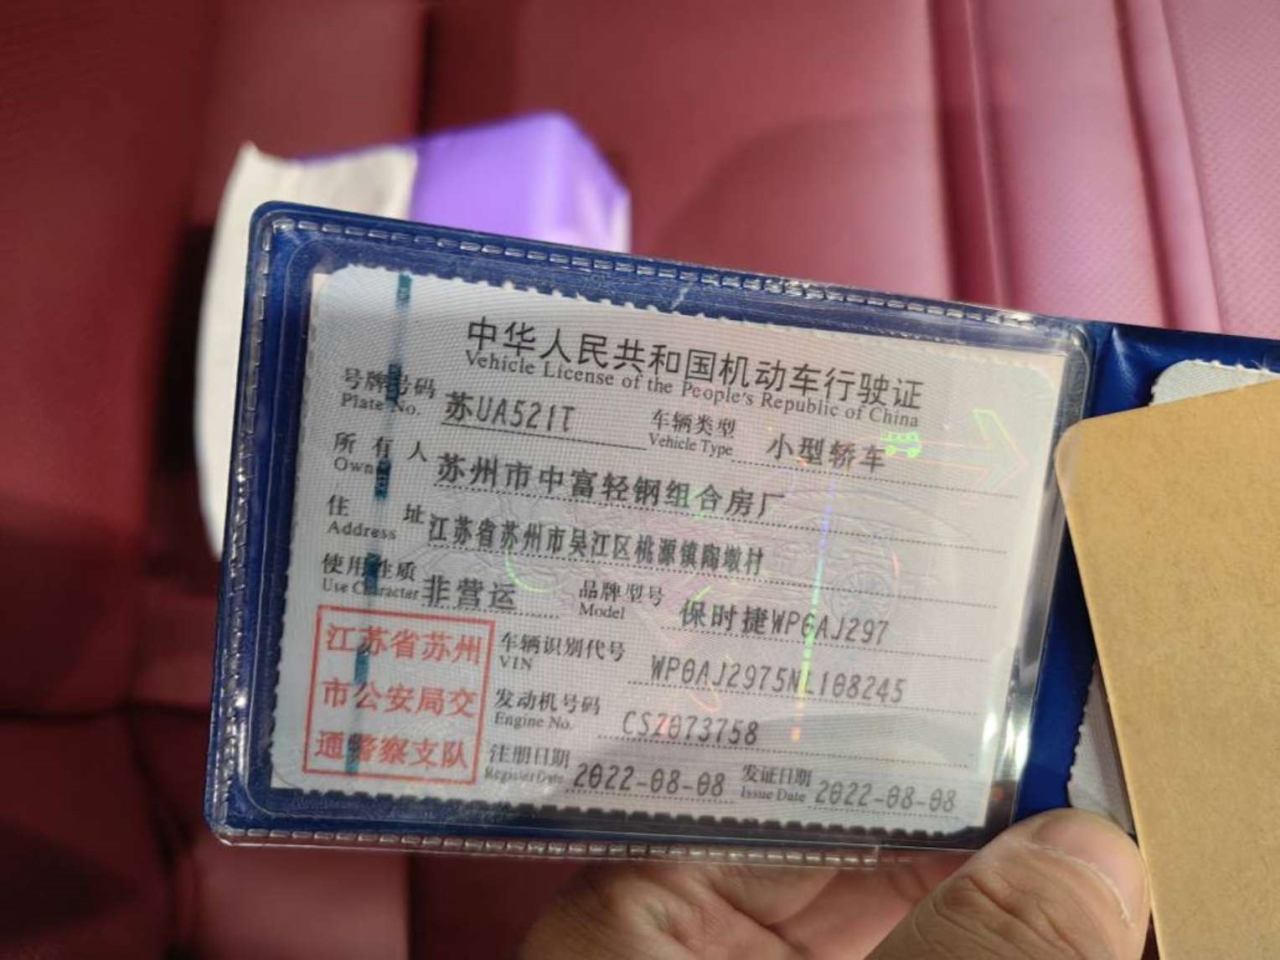 中华人民共和国机动车行驶证
Vehicle License of the People's Republic of China
号牌号码 苏UA521T 车辆类型 小型轿车
Plate No. Vehicle Type
所有人 苏州市中富轻钢组合房厂
Owner
住址 江苏省苏州市吴江区桃源镇陶墩村
Address
使用性质 非营运 品牌型号 保时捷WP0AJ297
Use Character Model
江苏省苏州
市公安局交
通警察支队
车辆识别代号 WP0AJ2975NL108245
VIN
发动机号码 CSZ073758
Engine No.
注册日期 2022-08-08 发证日期 2022-08-08
Register Date Issue Date